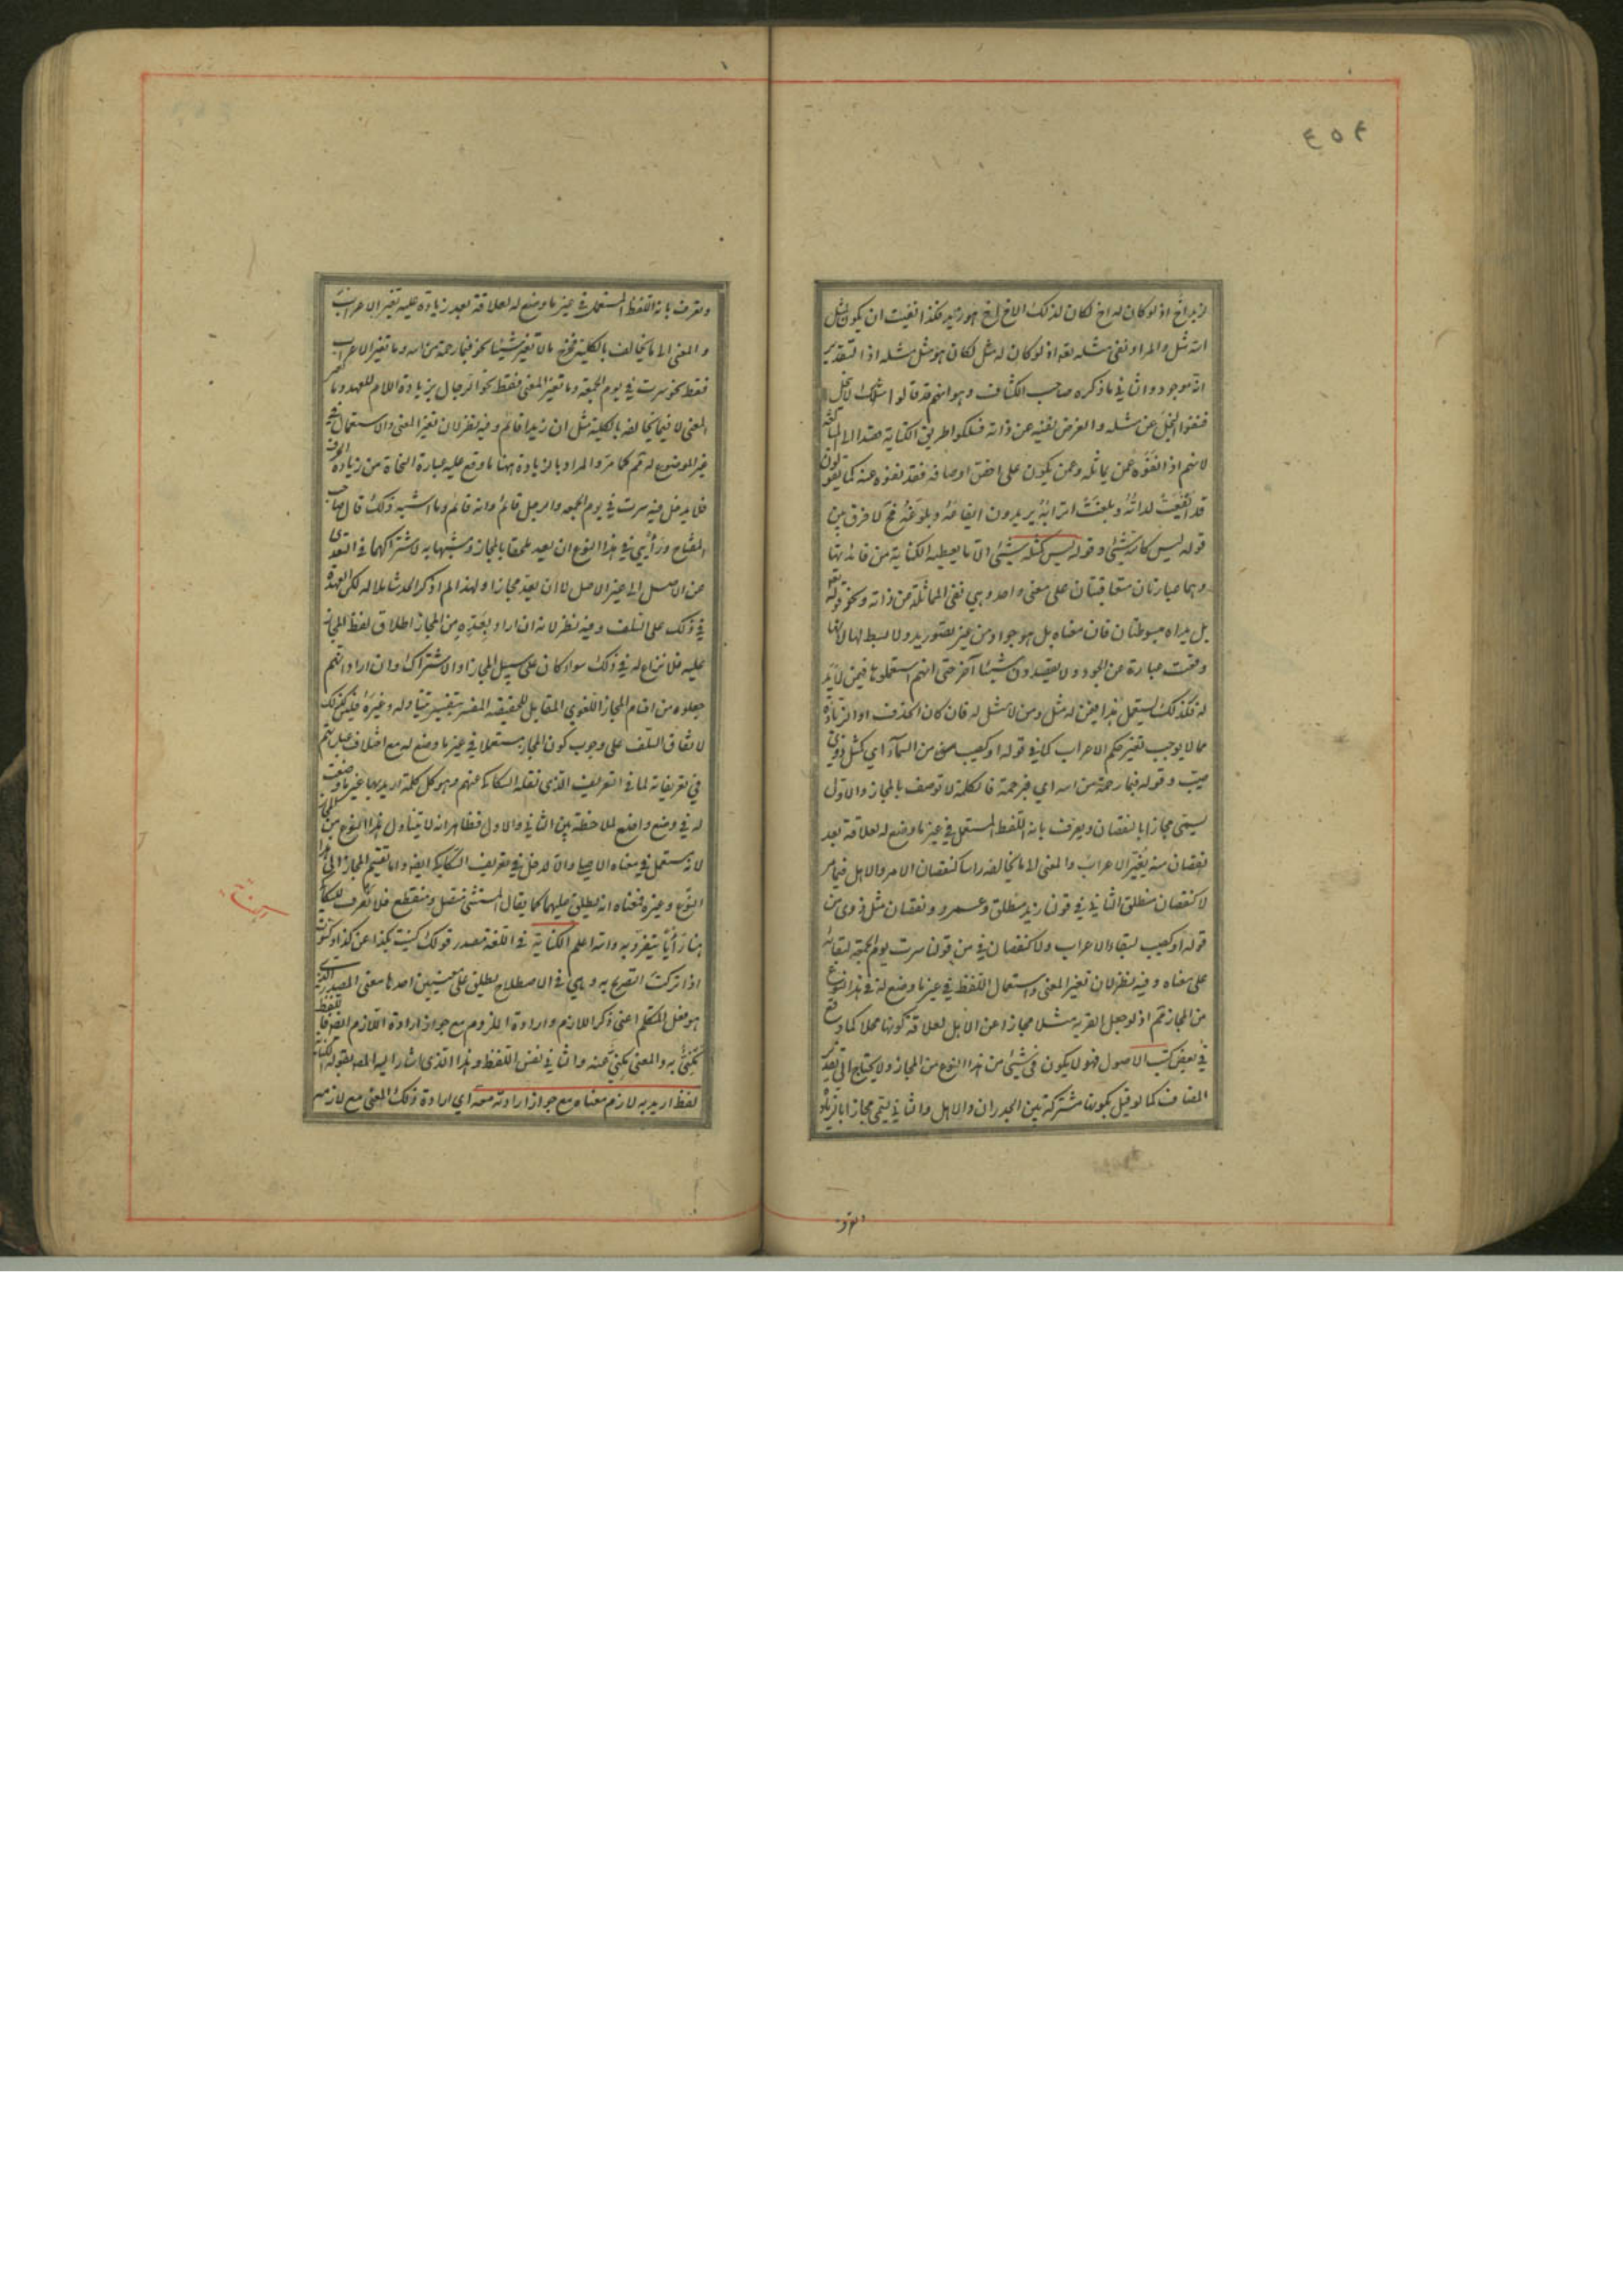 ٤٥٤
لزيد اخ اذ لو كان له اخ لكان لذلك الاخ اخ هو زيد فكذا نفيت ان يكون لمثل
الله مثل والمراد نفى مثله تعالى اذ لو كان له مثل لكان هو مثل مثله اذ التقدير
انه موجود والثاني ما ذكره صاحب الكشاف وهو انهم قد قالوا مثلك لا يبخل
فنفوا البخل عن مثله والغرض نفيه عن ذاته فسلكوا طريق الكناية قصدا الى المبالغة
لانهم اذا نفوه عمن يماثله وعمن يكون على اخص اوصافه فقد نفوه عنه كما يقولون
قد ايفعت لداته وبلغت اترابه يريدون ايفاعه وبلوغه فح لا فرق بين
قوله ليس كالله شيئ وقوله ليس كمثله شيئ الا ما يعطيه الكناية من فائدتها
وهما عبارتان متعاقبتان على معنى واحد وهي نفى المماثلة عن ذاته ونحو قوله تعالى
بل يداه مبسوطتان فان معناه بل هو جواد من غير تصور يد ولا بسط لها لانها
وقعت عبارة عن الجود ولا يقصدون شيئا آخر حتى انهم استعملوها فيمن لا يد
له فكذلك يستعمل هذا فيمن له مثل ومن لا مثل له فان كان الحذف او الزيادة
مما لا يوجب تغير حكم الاعراب كما في قوله او كصيب من السماء اي كمثل ذوي
صيب وقوله فبما رحمة من الله اي فبرحمة فالكلمة لا توصف بالمجاز والاول
يسمى مجازا بالنقصان ويعرف بانه اللفظ المستعمل في غير ما وضع له لعلاقة بعد
نقصان منه يغير الاعراب والمعنى الا ما يخالفه راسا كنقصان الامر والاهل فيما مر
لا كنقصان منطلق الثاني في قولنا زيد منطلق وعمرو ونقصان مثل ذوي من
قوله او كصيب لبقاء الاعراب ولا كنقصان في من قولنا سرت يوم الجمعة لبقائه
على معناه وفيه نظر لان تغير المعنى واستعمال اللفظ في غير ما وضع له في هذا النوع
من المجاز ثم اذ لو جعل القرية مثلا مجازا عن الاهل لعلاقة كونها محلا كما وقع
في بعض كتب الاصول فهو لا يكون في شيئ من هذا النوع من المجاز ولا يحتاج الى تقدير
المضاف كما لو قيل بكونها مشتركة بين الجدران والاهل والثاني يسمى مجازا بالزيادة
ويعرف بانه اللفظ المستعمل في غير ما وضع له لعلاقة بعد زيادة عليه تغير الاعراب
والمعنى الا ما يخالف بالكلية فخرج ما لا تغير شيئا نحو فبما رحمة من الله وما تغير الاعراب
فقط نحو سرت في يوم الجمعة وما تغير المعنى فقط نحو الرجال بزيادة اللام للعهد وما
المعنى لا فيما يخالفه بالكلية مثل ان زيدا قائم وفيه نظر لان تغير المعنى والاستعمال في
غير الموضوع له ثم كما مر والمراد بالزيادة ههنا ما وقع عليه عبارة النحاة من زيادة الحروف
فلا يدخل فيه سرت في يوم الجمعة والرجل قائم وانه قائم وما اشبه ذلك قال صاحب
المفتاح ورأيي في هذا النوع ان يعد ملحقا بالمجاز ومشبها به لاشتراكهما في التعدي
عن الاصل الى غير الاصل لا ان يعد مجازا ولهذا لم اذكر الحد شاملا له لكن العهدة
في ذلك على السلف وفيه نظر لانه ان اراد بعده من المجاز اطلاق لفظ المجاز
عليه فلا نزاع له في ذلك سواء كان على سبيل المجاز او الاشتراك وان اراد انهم
جعلوه من اقسام المجاز اللغوي المقابل للحقيقة المفسر بتفسير يتناوله وغيره فليس كذلك
لاتفاق السلف على وجوب كون المجاز مستعملا في غير ما وضع له مع اختلاف عباراتهم
في تعريفاته كما في التعريف الذي نقله السكاكي عنهم وهو كل كلمة اريد بها غير ما وضعت
له في وضع واضع لملاحظة بين الثاني والاول فظاهر انه لا يتناول هذا النوع من المجاز
لانه مستعمل في معناه الاصلي والا لدخل في تعريف السكاكي ايضا واما تقسيم المجاز الى هذا
النوع وغيره فمعناه انه يطلق عليهما كما يقال المستثنى متصل ومنقطع فلا نعرف للسكاكي
هنا رأيا يتفرد به والله اعلم الكناية في اللغة مصدر قولك كنيت بكذا عن كذا وكنوت
اذا تركت التصريح به وهي في الاصطلاح يطلق على معنيين احدهما معنى المصدر الذي
هو فعل المتكلم اعني ذكر اللازم وارادة الملزوم مع جواز ارادة اللازم ايضا فاللفظ
مكني به والمعنى مكني عنه والثاني نفس اللفظ وهذا الذي اشار اليه المص بقوله الكناية
لفظ اريد به لازم معناه مع جواز ارادته معه اي ارادة ذلك المعنى مع لازمه